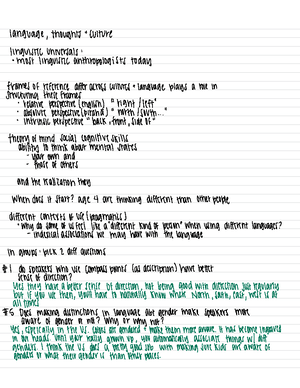 language, thoughts + culture
linguistic universals:
- most linguistic anthropologists today
frames of reference differ across cultures + language plays a role in
structuring these frames
- relative perspective (english) "right/left"
- absolute perspective "north/south..."
- intrinsic perspective "back, front, side of"
theory of mind social cognitive skills
ability to think about mental states
- your own and
- those of others
and the realization they
When does it start? age 4 are thinking different than other people
different contexts of use (pragmatics)
- why do some of us feel like a "different kind of person" when using different languages?
- indexical associations we may have with the language
In groups: pick 2 diff questions
#1 do speakers who use compass points (as description) have better
sense of direction?
Yes they have a better sense of direction, not being good with direction just regularly
but if you use them, you'll have to normally know where North, South, East, West is at
all times!
#5 Does making distinctions in language abt gender make speakers more
aware of gender or no? Why or why not?
Yes, especially in the US colors are gendered + make them more aware. It has become ingrained
in our heads until your fully grown up, you automatically associate things w/ diff
genders. I think the US does a pretty good job with making just kids are aware of
genders or what their gender is than other places.